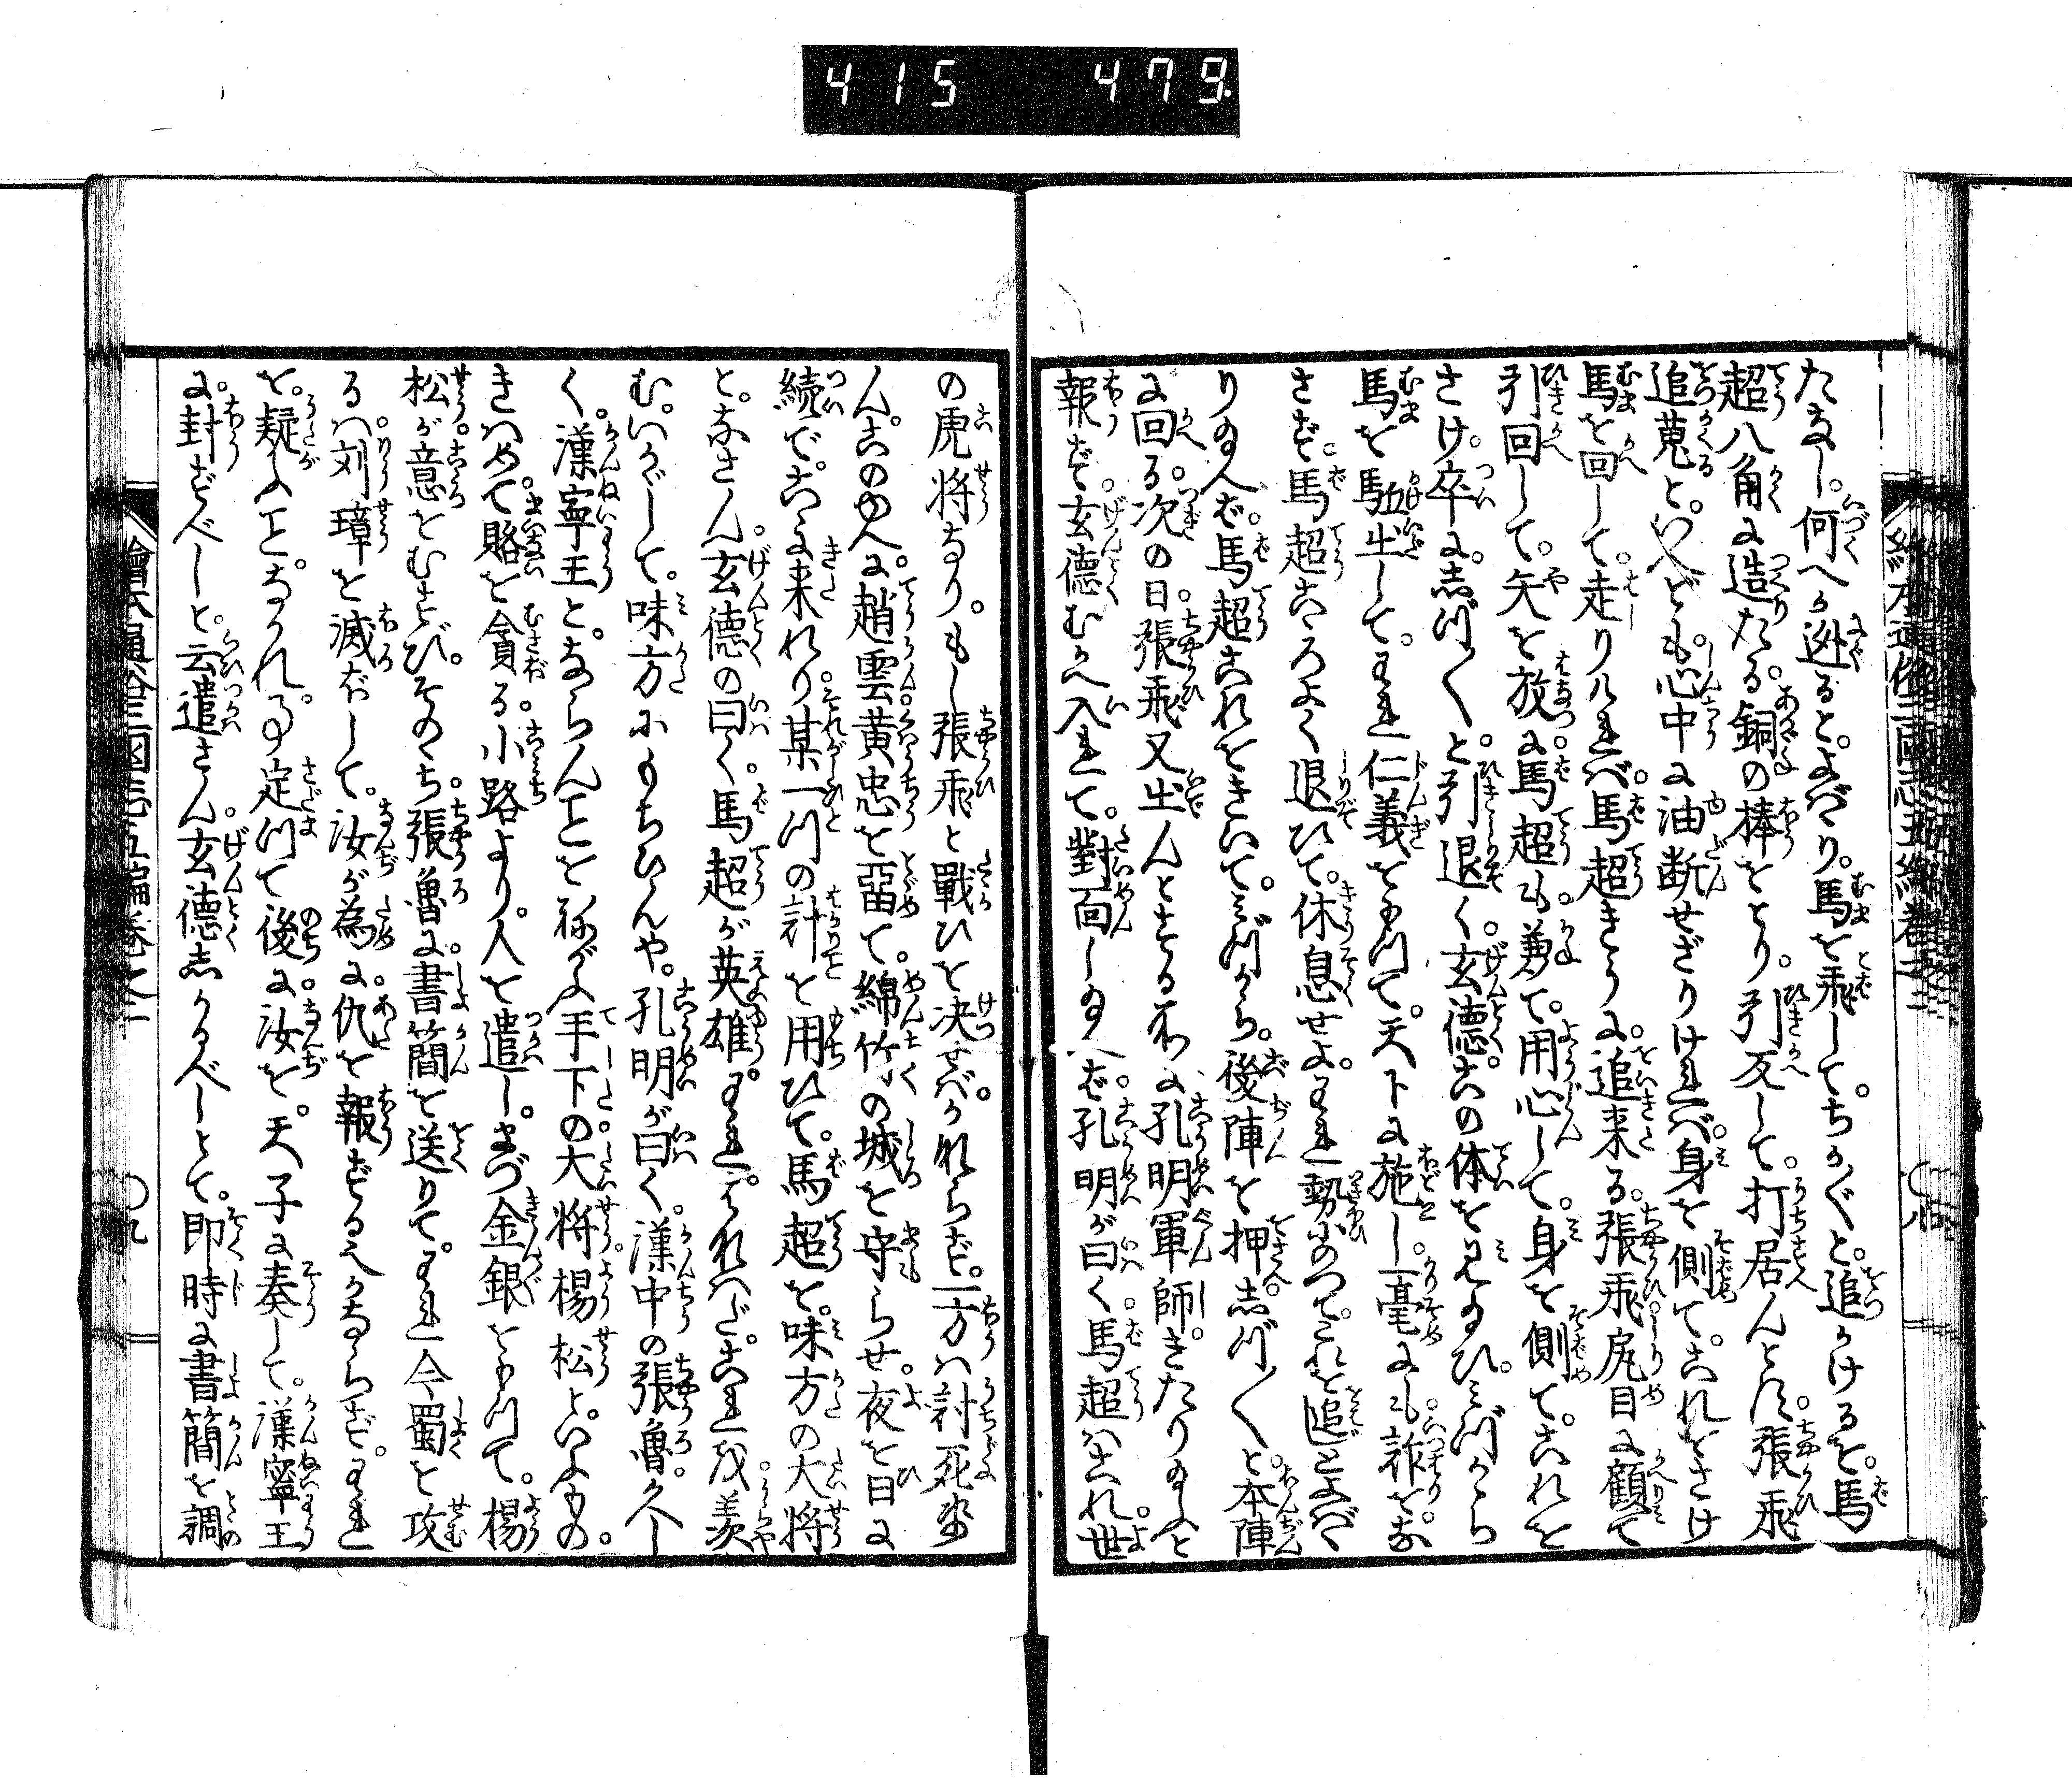 415 479.
たまし。何へか迯ると。よばり。馬を飛して。ちかぐと。追かけるを。馬
超八角に造たる。銅の棒をとり。引反して。打居んとす。張飛
追蒐と。いへども。心中に油断せざりければ。身を側て。これをさけ
馬を回して。走りければ。馬超きうに。追来る。張飛。尻目に顧て
引回して。矢を放に。馬超も。兼て。用心して。身を側て。これを
さけ。卒に。志づ〱と。引退く。玄德。この体を見給ひ。みづから
馬を駈出して。われ仁義をもつて。天下に施し。一毫にも。詐をな
さず。馬超こゝろよく退ひて。休息せよ。われ勢にのつて。これを追とよば
り給へば。馬超これをきいて。みづから。後陣を押。志づ〱と。本陣
に回る。次の日。張飛又出んとする所に。孔明軍師。きたり給ふと
報ず。玄德むかへ入れて。對面し給へば。孔明が曰く。馬超はこれ世
繪本通俗三國志五編卷之二 〇八
の虎将なり。もし張飛と戰ひを决せば。かならず。一方は討死せ
ん。このゆへに。趙雲黄忠を畱て。綿竹の城を守らせ。夜を日に
続で。こゝに来れり。某一つの計を用ひて。馬超を。味方の大将
と。なさん。玄德の曰く。馬超が英雄。われ。はなはだ。これを羨
む。いかゞして。味方にもちひんや。孔明が曰く。漢中の張魯。久し
く。漢寧王と。ならんことをねがふ。手下の大将楊松といふもの。
きはめて賂を貪る。小路より。人を遣し。まづ金銀をもつて。楊
松が意をむすび。そのゝち張魯に。書簡を送りて。われ今蜀を攻
るは。刘璋を滅ぼして。汝が為に。仇を報ずるにかならず。われ
を。疑ふことなかれ。事定つて後に。汝を。天子に奏して。漢寧王
に。封ずべしと。云遣さん。玄德志かるべしとて。即時に書簡を調
繪本通俗三國志五編卷之二 〇九